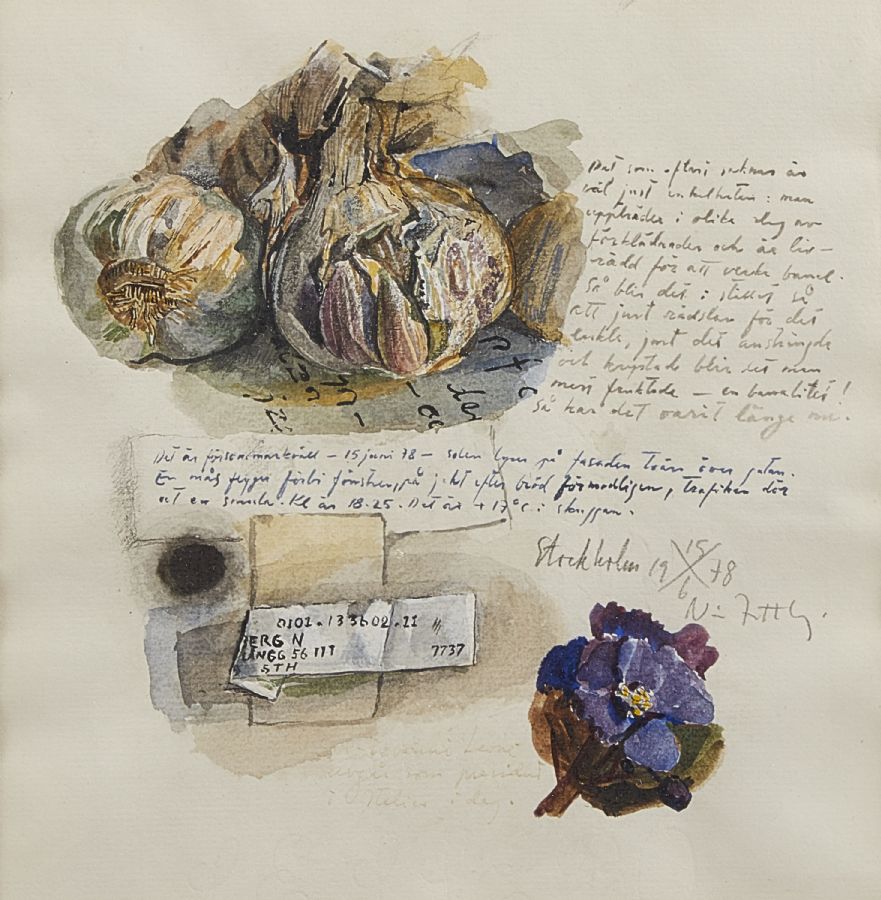 Det som oftast saknas är
väl just enkelheten: man
uppträder i olika slag av
förklädnader och är liv-
rädd för att verka banal.
Så blir det i stället så
att just rädslan för det
enkla, just det ansträngda
och krystade blir det man
mest fruktade – en banalitet!
Så har det varit länge nu.
Det är försommarkväll – 15 juni 78 – solen lyser på fasaden tvärs över gatan.
En mås flyger förbi fönstret, på jakt efter bröd förmodligen, trafiken dör
ut en smula. Kl är 18.25. Det är +17°C i skuggan.
Stockholm 19 15/6 78
0101.133602.11
BERG N
LÅNGG 56 III
STH
7737
Giovanni Leone
avgår som president
i Italien i dag.